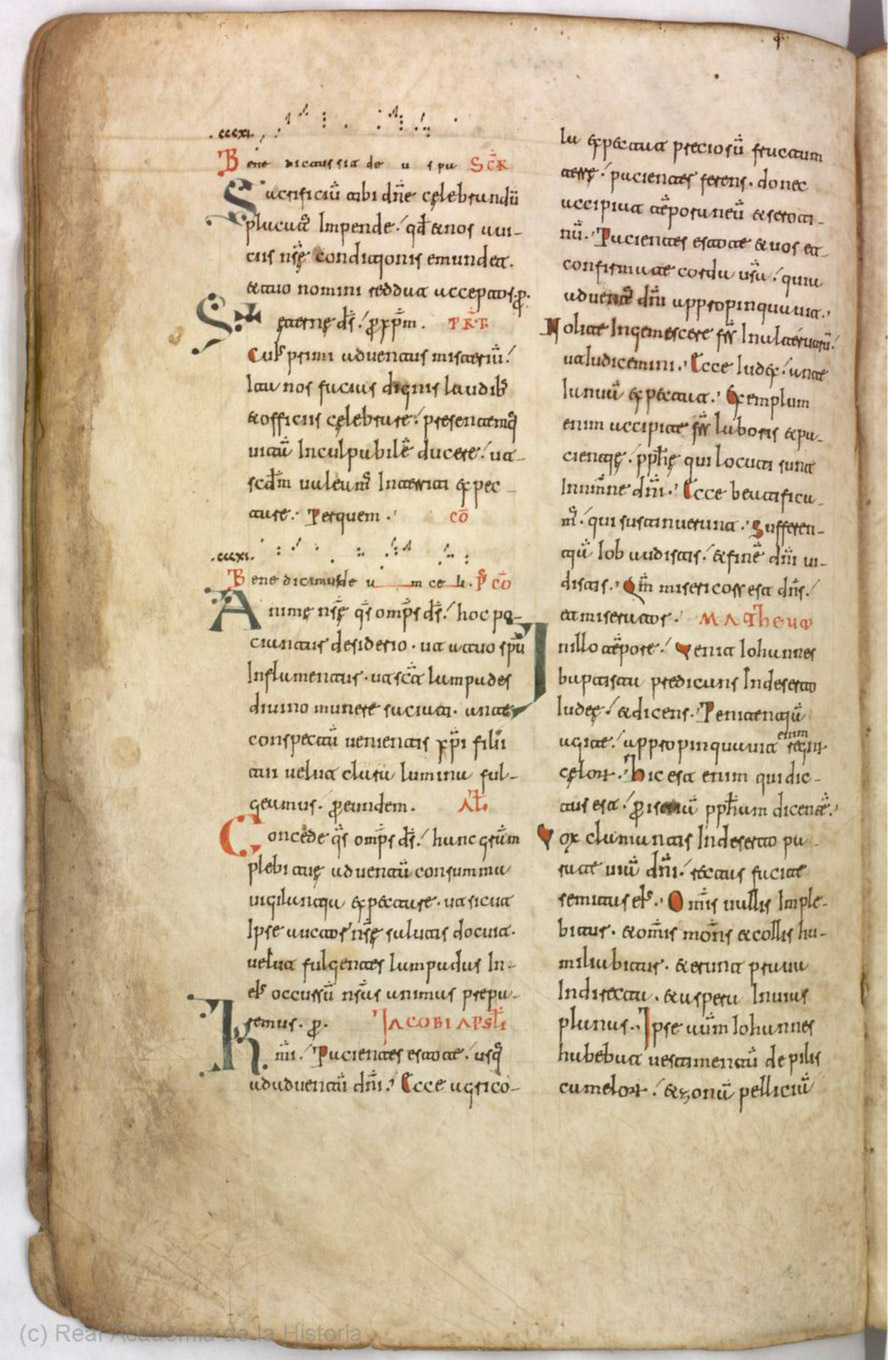 .cccxi.
Bene dicaussia de u spu SCR
Sacrificiū tibi dn̄e cęlebrandū
placatus Impende. qd̄ & nos a ui-
ciis nr̄ę condiqionis emundet.
& tuo nomini reddat acceptos. ꝑ.
eternę ds̄. ꝑ xp̄m. TR̄T
Cuius primi aduentus misteriū.
Ita nos facias dignis laudib;
& officiis cęlebrare. presentemq;
uitā Inculpabilē ducere. ut
scd̄m ualeam̄ Interriti expec-
tare. Perquem. cō
.cccxi.
Benedicimus de u m ce li. P̄ CŌ
Animę nr̄ę qs̄ omp̄s ds̄. hoc po-
ciantur desiderio. ut a tuo spū
Inflamentur. ut sc̄a lampades
diuino munere saciati. ante
conspectū uenientis xp̄i filii
tui uelut clara lumina ful-
geamus. ꝑ eundem. AL̄
Concede qs̄ omp̄s ds̄. hunc grām
plebi tuę aduentū consumma
uigilantia expectare. ut sicut
Ipse auctor nr̄ę salutis docuit.
uelut fulgentes lampadas In
eius occursū nr̄as animas prepa-
remus. ꝑ. IACOBI APSTL̄I
Km̄i. Pacientes estote. usq;
ad aduentū dn̄i. Ecce agrico-
la expectat preciosū fructum
terrę. pacienter ferens. donec
accipiat tēporaneū & seroti-
nū. Pacientes estote & uos et
confirmate corda ur̄a. quia
aduentus dn̄i appropinquauit.
Nolite Ingemescere frs̄ In alterutrū.
ut Iudicemini. Ecce Iudex. ante
Ianuā expectat. Exemplum
enim accipite frs̄ laboris & pa-
cientię. pph̄ę qui locuti sunt
In nm̄ne dn̄i. Ecce beatifica-
m̄. qui sustinuerunt. Sufferen-
tiā Iob audistis. & finē dn̄i ui-
distis. Qm̄ misericors est dn̄s.
et miserator. MATHEUM
In illo tēpore. Uenit Iohannes
baptista predicans In deserto
Iudeę. & dicens. Penitentiā
agite. appropinquauit enim regnū
cęlorū. Hic est enim qui dic-
tus est. ꝑ isaiā pph̄am dicentē.
Uox clamantis In deserto pa-
rate uiā dn̄i. rectas facite
semitas eius. Omīs uallis Imple-
bitur. & omīs mons & collis hu-
miliabitur. & erunt praua
In directa. & aspera In uias
planas. Ipse autē Iohannes
habebat uestimentū de pilis
camelorū. & zonā pelliciā
(c) Real Academia de la Historia